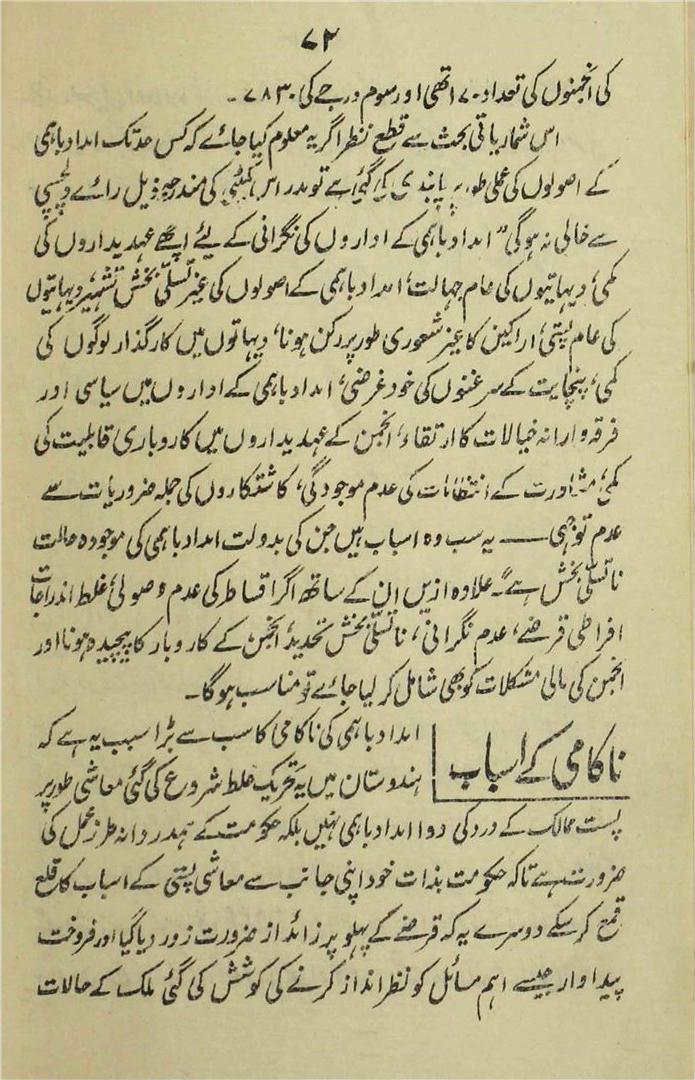 ۷۲
کی انجمنوں کی تعداد ۱۷۰ تھی اور سوم درجے کی ۷۸۳۰ ۔
اس شماریاتی بحث سے قطع نظر اگر یہ معلوم کیا جائے کہ کس حد تک امداد باہمی
کے اصولوں کی عملی طور پر پابندی کی گئی ہے تو مدراس کمیٹی کی مندرجہ ذیل رائے دلچسپی
سے خالی نہ ہوگی "امداد باہمی کے اداروں کی نگرانی کے لیئے اچھے عہدیداروں کی
کمی، دیہاتیوں کی عام جہالت، امداد باہمی کے اصولوں کی غیر تسلی بخش تشہیر، دیہاتیوں
کی عام پستی، اراکین کا غیر شعوری طور پر رکن ہونا، دیہاتوں میں کارگذار لوگوں کی
کمی، پنچایت کے سرغنوں کی خود غرضی، امداد باہمی کے اداروں میں سیاسی اور
فرقہ وارانہ خیالات کا ارتقاء، انجمن کے عہدیداروں میں کاروباری قابلیت کی
کمی، مشاورت کے انتظامات کی عدم موجودگی، کاشتکاروں کی جملہ ضروریات سے
عدم توجہی — یہ سب وہ اسباب ہیں جن کی بدولت امداد باہمی کی موجودہ حالت
ناتسلی بخش ہے"۔ علاوہ ازیں ان کے ساتھ اگر اقساط کی عدم وصولی، غلط اندراجات
افراطی قرضے، عدم نگرانی، ناتسلی بخش تحدید، انجمن کے کاروبار کا پیچیدہ ہونا اور
انجمن کی مالی مشکلات کو بھی شامل کر لیا جائے تو مناسب ہوگا۔
ناکامی کے اسباب
امداد باہمی کی ناکامی کا سب سے بڑا سبب یہ ہے کہ
ہندوستان میں یہ تحریک غلط شروع کی گئی معاشی طور پر
پست ممالک کے درد کی دوا امداد باہمی نہیں بلکہ حکومت کے ہمدردانہ طرز عمل کی
ضرورت ہے تاکہ حکومت بذات خود اپنی جانب سے معاشی پستی کے اسباب کا قلع
قمع کر سکے دوسرے یہ کہ قرضے کے پہلو پر زائد از ضرورت زور دیا گیا اور فروخت
پیداوار جیسے اہم مسائل کو نظر انداز کرنے کی کوشش کی گئی ملک کے حالات